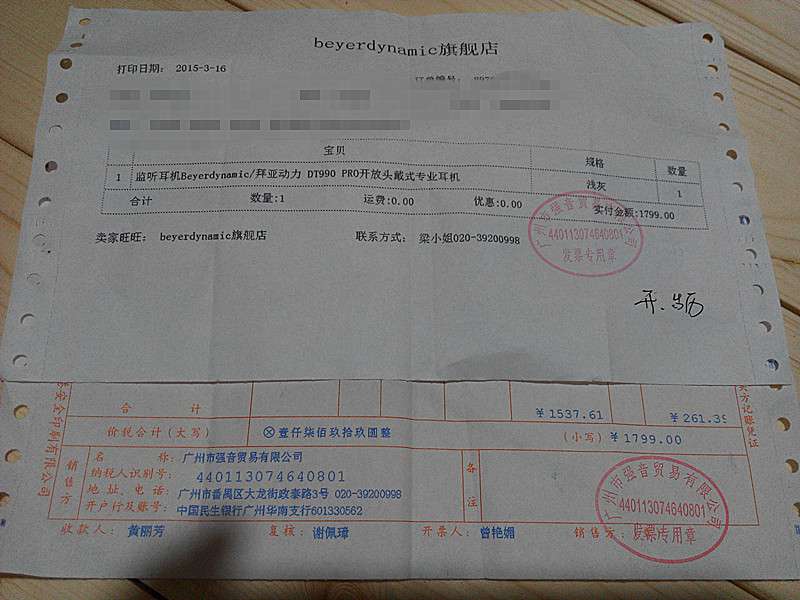 beyerdynamic旗舰店
打印日期： 2015-3-16
订单编号：
宝贝 规格 数量
1 监听耳机Beyerdynamic/拜亚动力 DT990 PRO开放头戴式专业耳机 浅灰 1
合计 数量:1 运费:0.00 优惠:0.00 实付金额:1799.00
卖家旺旺： beyerdynamic旗舰店 联系方式： 梁小姐020-39200998
广州市强音贸易有限公司
440113074640801
发票专用章
合 计 ￥1537.61 ￥261.39
价税合计(大写) ⊗壹仟柒佰玖拾玖圆整 (小写) ￥1799.00
销售方
名 称: 广州市强音贸易有限公司
纳税人识别号: 440113074640801
地址、电话: 广州市番禺区大龙街政泰路3号 020-39200998
开户行及账号: 中国民生银行广州华南支行601330562
备注
收款人: 黄丽芳 复核: 谢佩璋 开票人: 曾艳媚 销售方:
广州市强音贸易有限公司
440113074640801
发票专用章
安全印制有限公司
方记账凭证